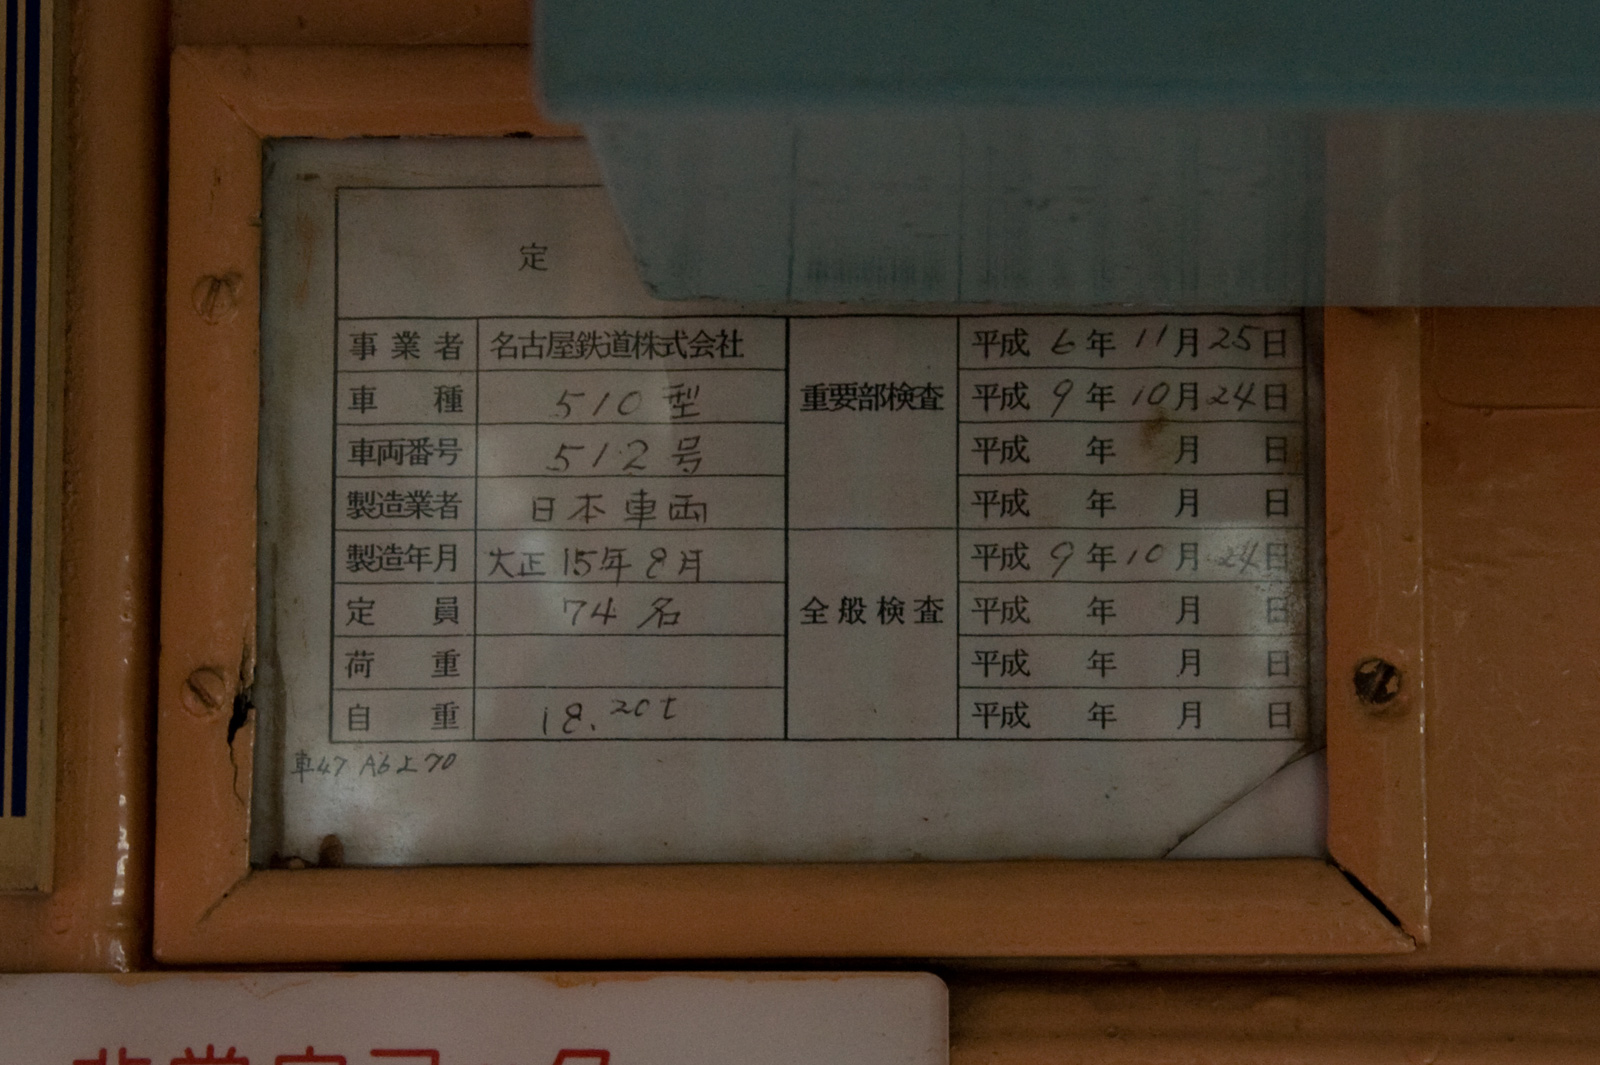 定
事業者 名古屋鉄道株式会社
車種 510型
車両番号 512号
製造業者 日本車両
製造年月 大正15年8月
定員 74名
荷重
自重 18.20t
重要部検査
平成6年11月25日
平成9年10月24日
平成 年 月 日
平成 年 月 日
全般検査
平成9年10月24日
平成 年 月 日
平成 年 月 日
平成 年 月 日
車47 A6 70